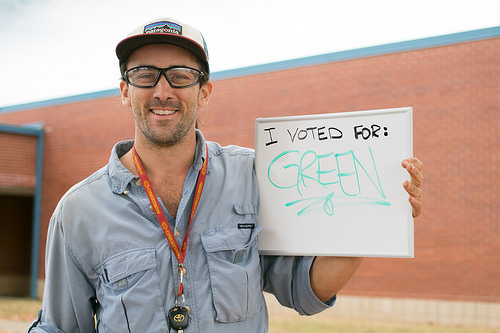 patagonia
I VOTED FOR:
GREEN